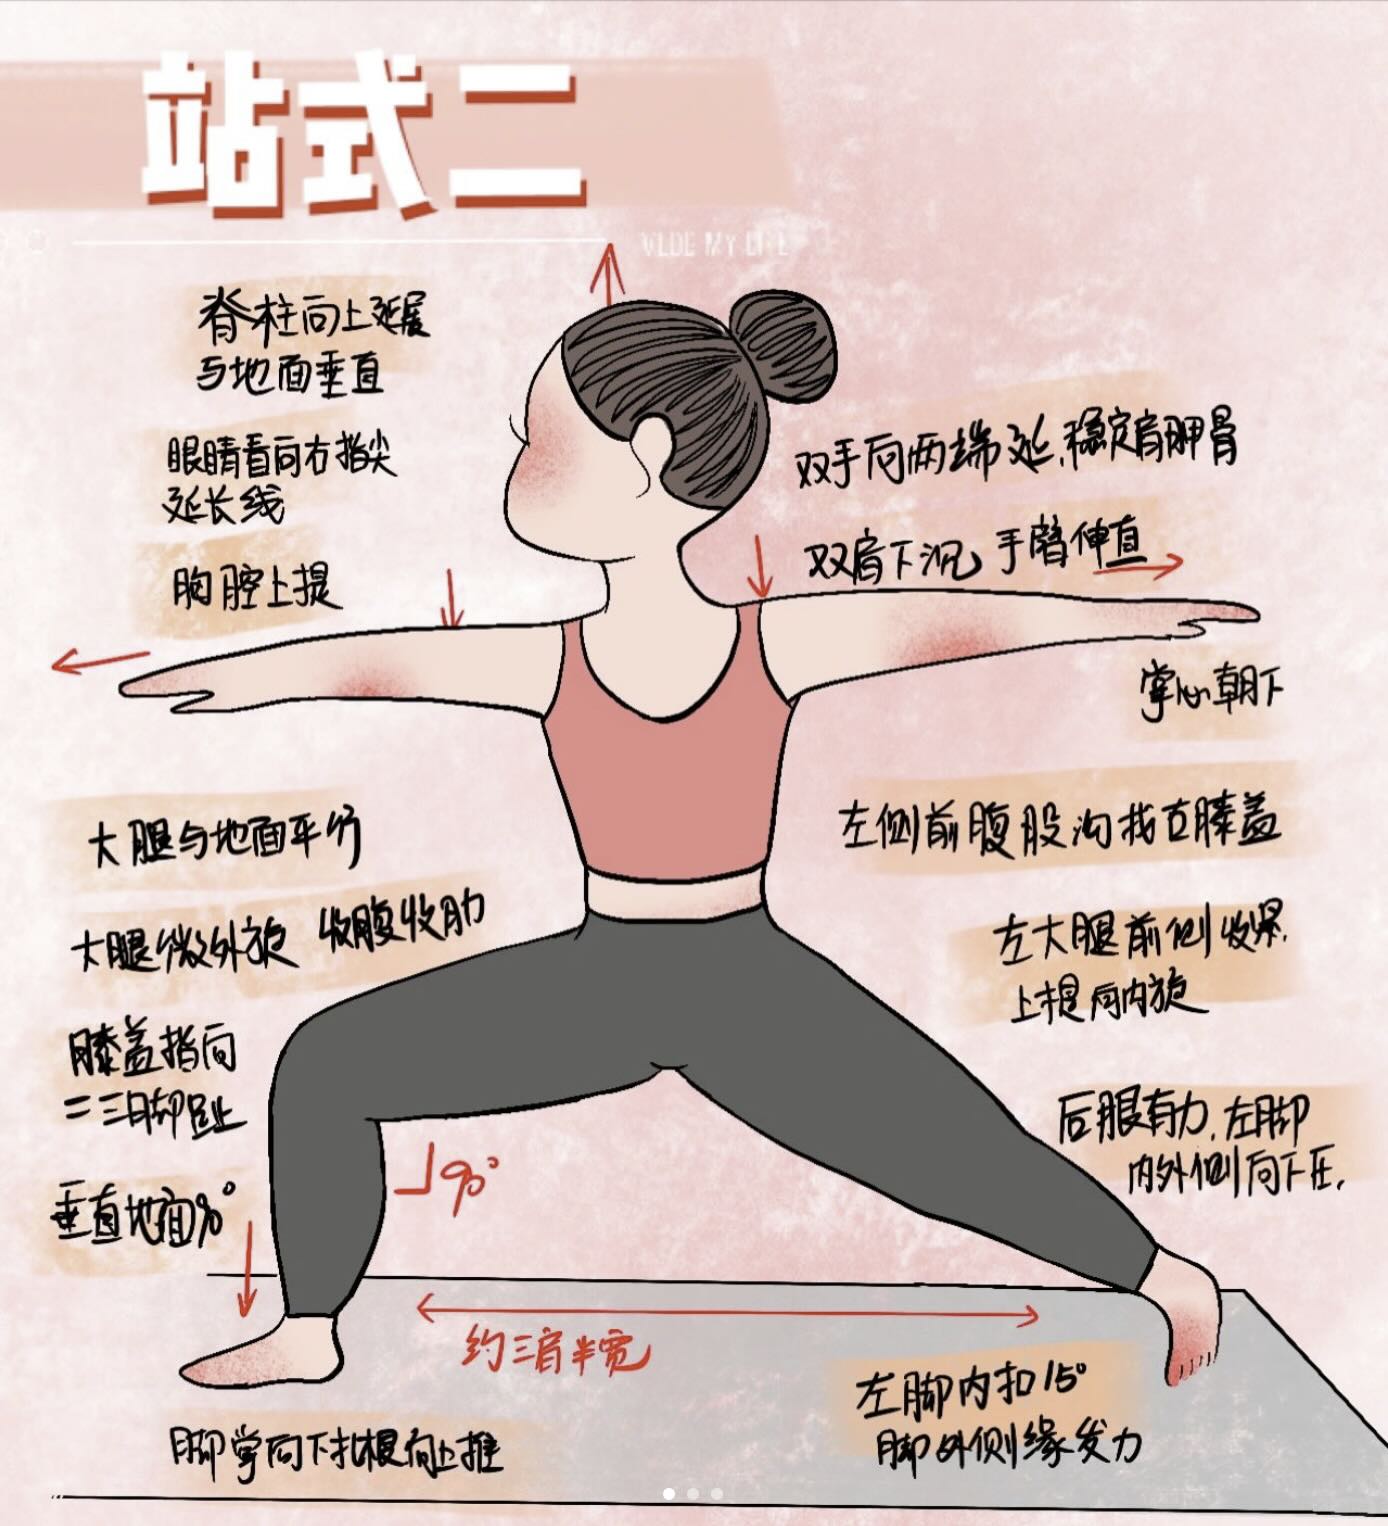 站式二
VLDE MY LIFE
脊柱向上延展
与地面垂直
眼睛看向右指尖
延长线
胸腔上提
双手向两端延,稳定肩胛骨
双肩下沉 手臂伸直
掌心朝下
大腿与地面平行
大腿微外旋 收腹收肋
膝盖指向
二三脚趾
垂直地面90°
90°
左侧前腹股沟找右膝盖
左大腿前侧收紧,
上提向内旋
后腿有力,左脚
内外侧向下压,
约三肩半宽
左脚内扣15°
脚外侧缘发力
脚掌向下扎根向上推